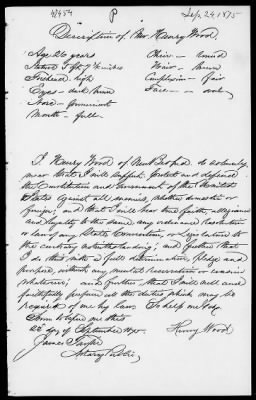 42454 P Sep. 24, 1875
Description of Mr. Henry Wood.
Age 26 years Chin - round
Stature 5 ft. 7 ½ inches Hair - brown
Forehead high Complexion - fair
Eyes - dark brown Face - - oval
Nose - prominent
Mouth - full
I Henry Wood of New Bedford do solemnly
swear that I will support, protect and defend
the Constitution and Government of the United
States against all enemies, whether domestic or
foreign; and that I will bear true faith, allegiance
and loyalty to the same, any ordinance, resolution
or law of any State Convention or Legislature to
the contrary notwithstanding; and further that
I do this with a full determination, pledge and
purpose, without any mental reservation or evasion
whatsoever; and further that I will well and
faithfully perform all the duties which may be
required of me by law. So help me God.
Sworn to before me this
22 day of September 1875. Henry Wood
James
Notary Public